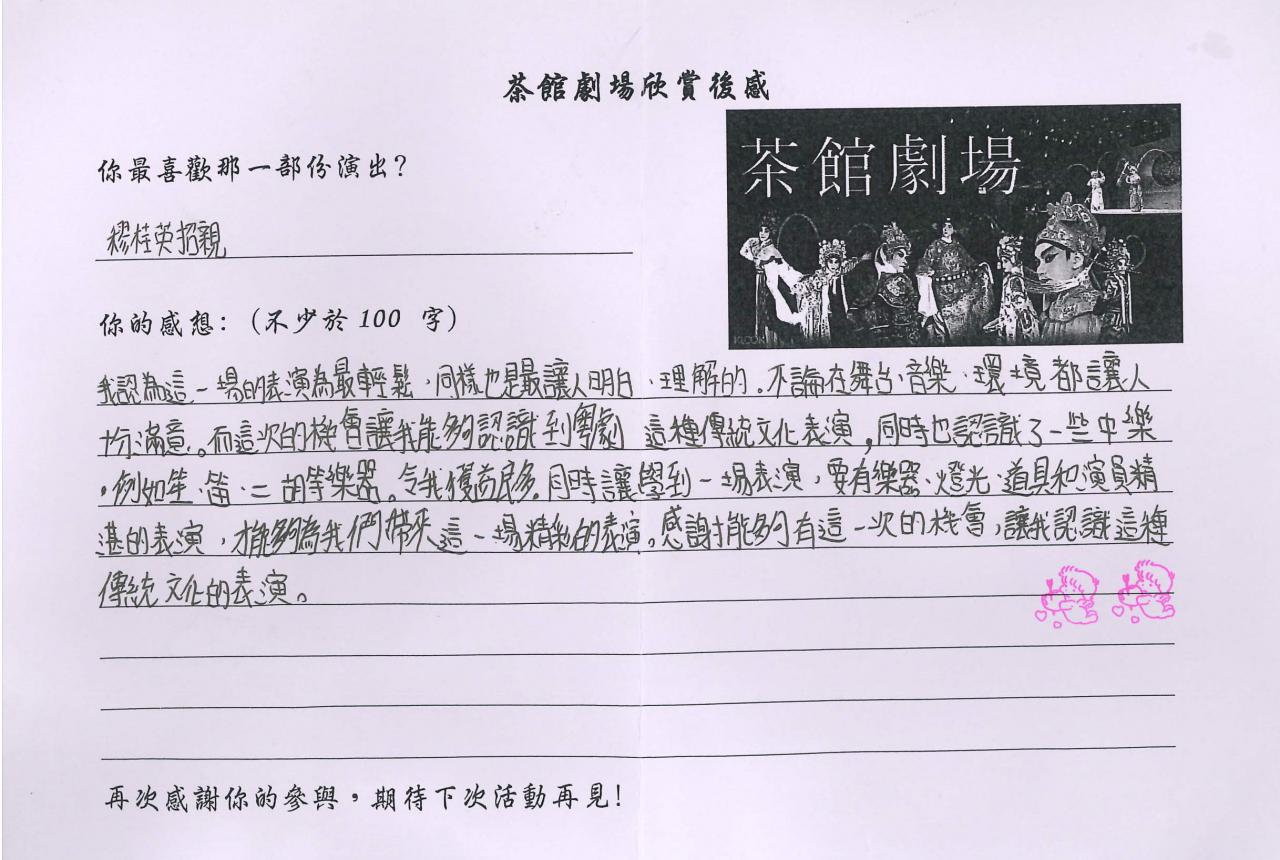 茶館劇場欣賞後感
茶館劇場
KLOOK
你最喜歡那一部份演出？
穆桂英招親
你的感想：（不少於100 字）
我認為這一場的表演為最輕鬆，同樣也是最讓人明白、理解的。不論在舞台、音樂、環境都讓人
十分滿意。而這次的機會讓我能夠認識到粵劇 這種傳統文化表演，同時也認識了一些中樂
，例如笙、笛、二胡等樂器。令我獲益良多。同時讓學到一場表演，要有樂器、燈光、道具和演員精
湛的表演，才能夠為我們帶來這一場精彩的表演。感謝才能夠有這一次的機會，讓我認識這種
傳統文化的表演。
再次感謝你的參與，期待下次活動再見！